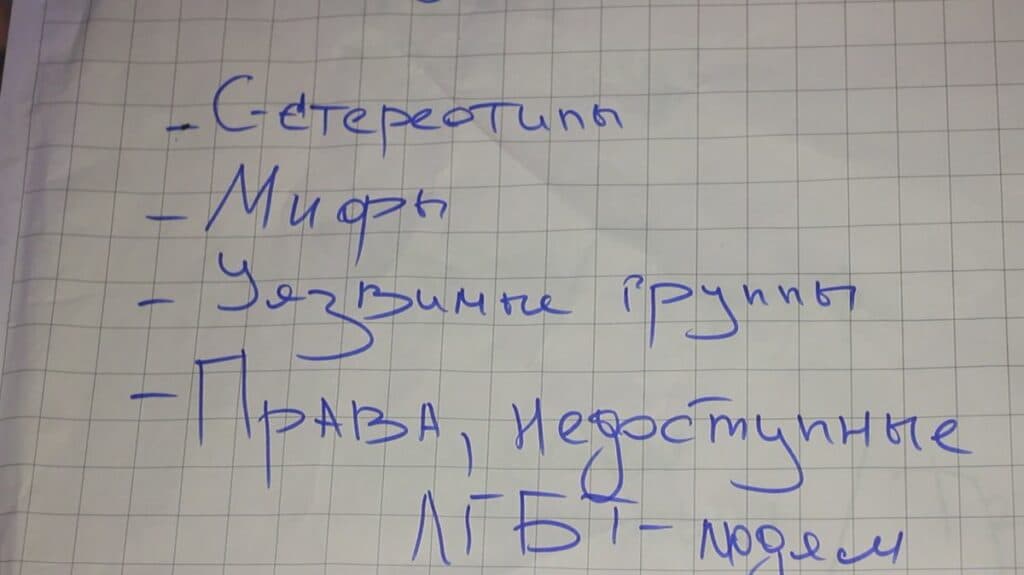 - С-стереотипы
- Мифы
- Уязвимые группы
- Права, недоступные
ЛГБТ-людям